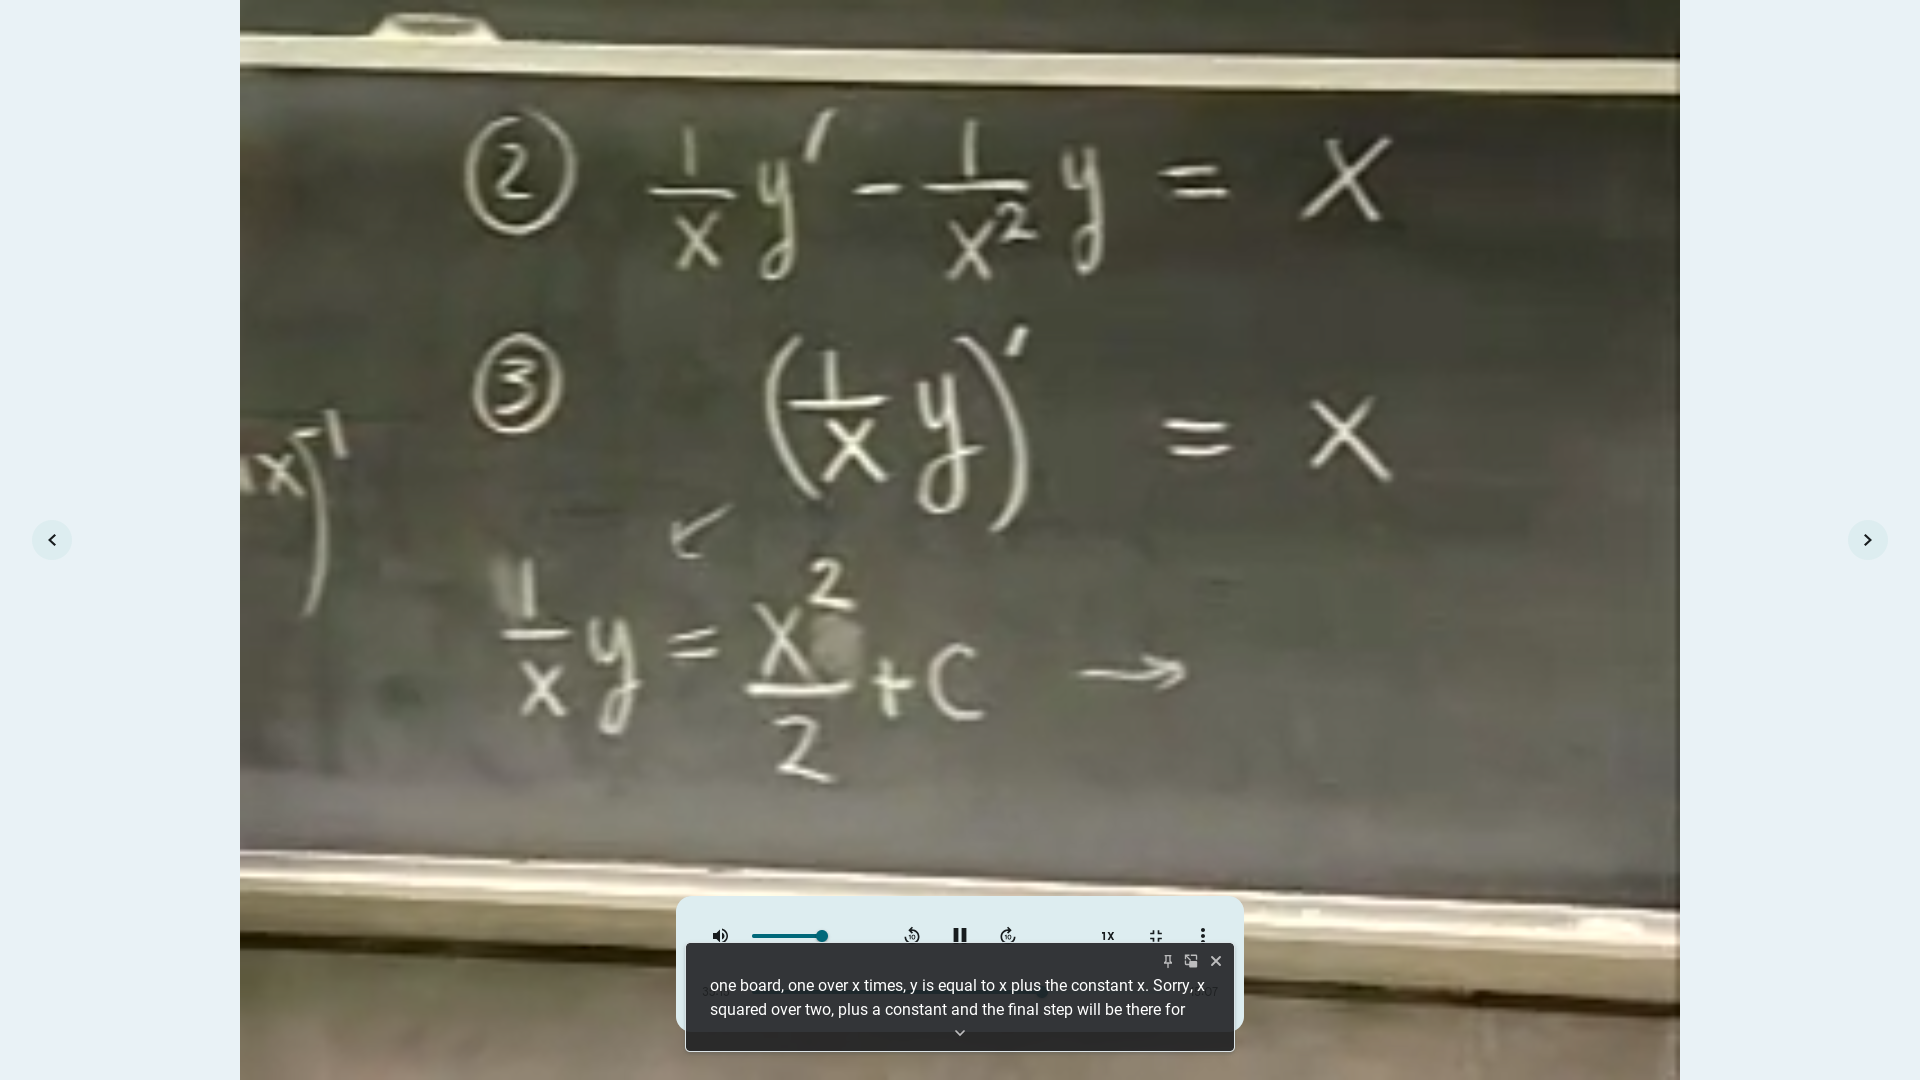 ② 1/x y' - 1/x² y = x
③ (1/x y)' = x
x)'
↙
1/x y = x²/2 + c →
1X
one board, one over x times, y is equal to x plus the constant x. Sorry, x
squared over two, plus a constant and the final step will be there for